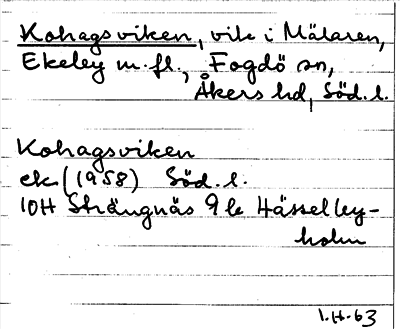 Kohagsviken, vik i Mälaren,
Ekeley m. fl., Fogdö sn,
Åkers hd, Söd. l.
Kohagsviken
ek. (1958) Söd. l.
10H Strängnäs 9 b Hässelby-
holm
1.H.63